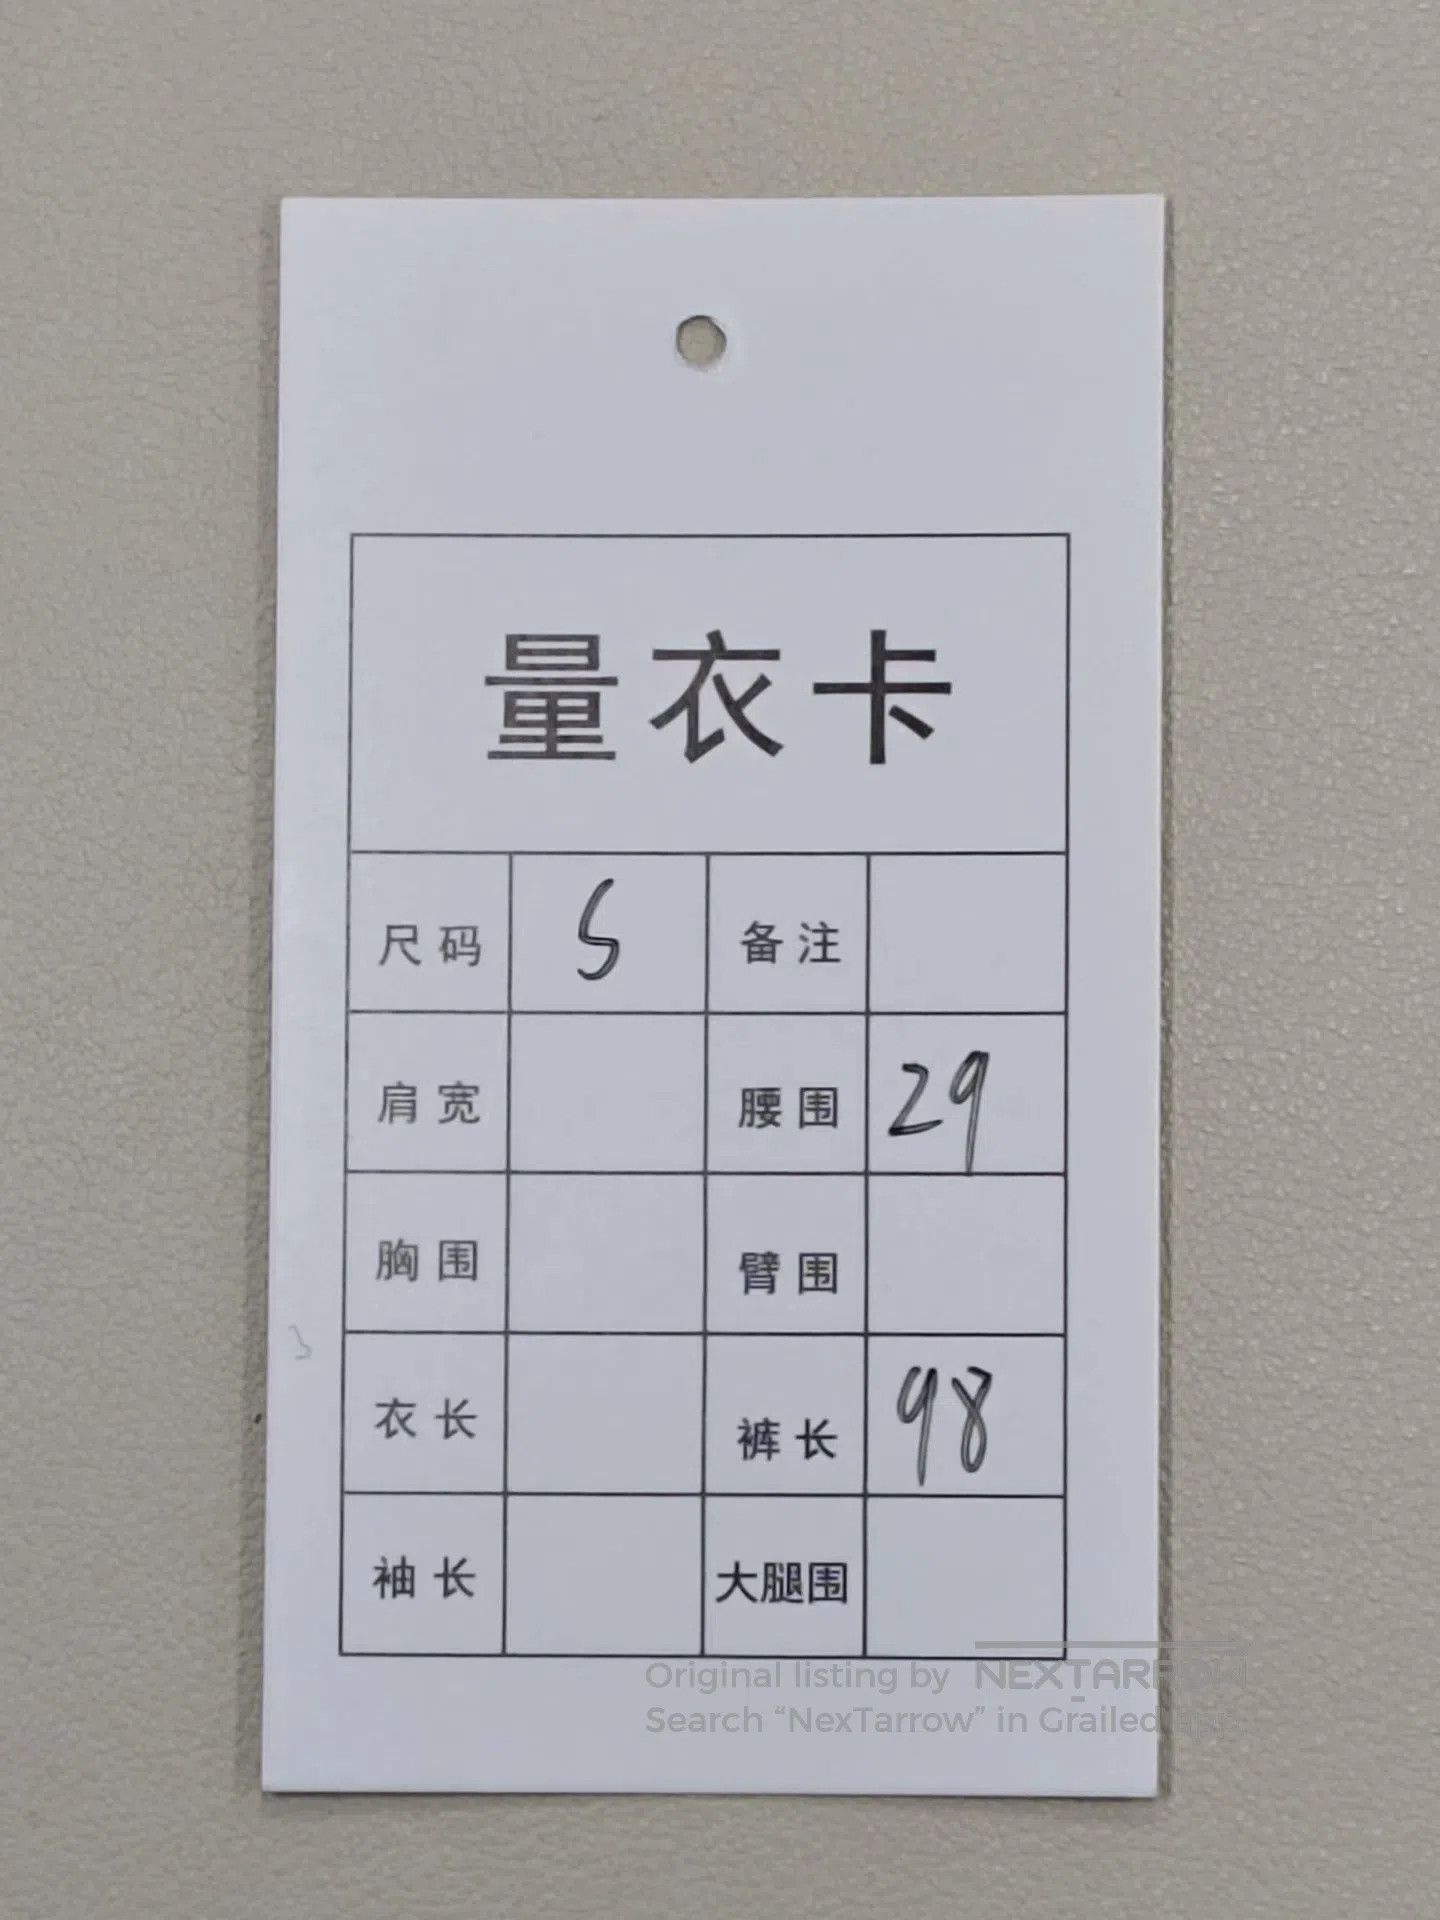 量衣卡
尺码 S 备注
肩宽 腰围 29
胸围 臂围
衣长 裤长 98
袖长 大腿围
Original listing by NEXTARROW
Search “NexTarrow” in Grailed